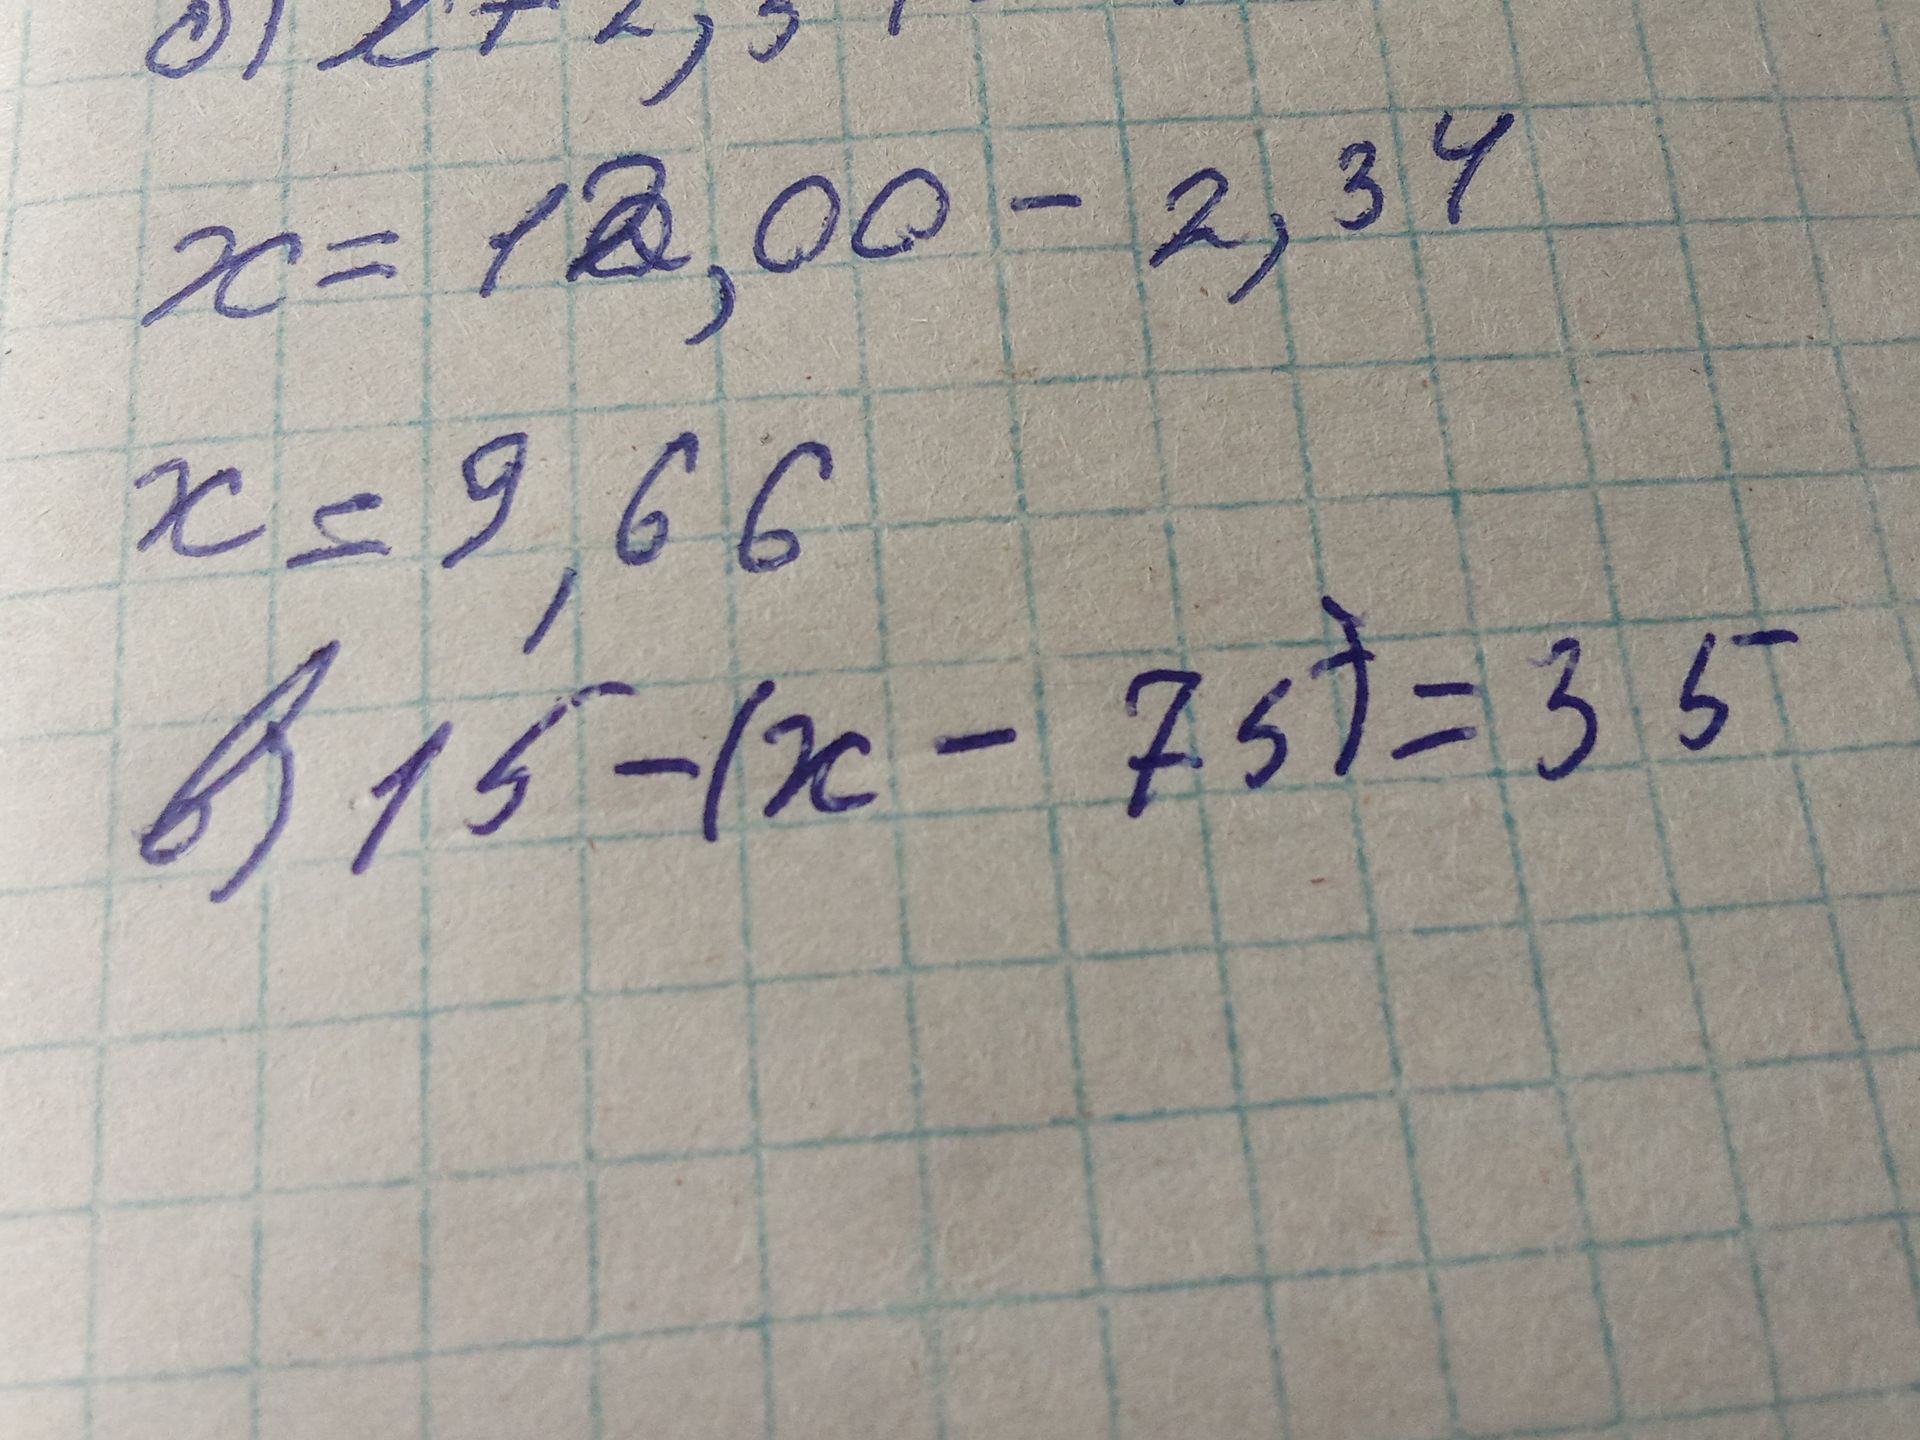 б) x + 2,34
x = 12,00 - 2,34
x = 9,66
в) 15 - (x - 75) = 35